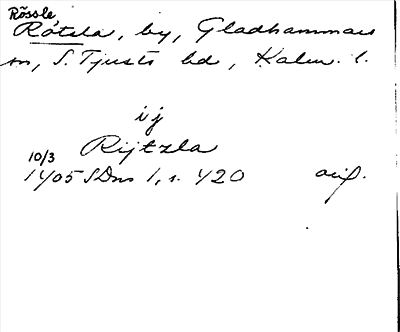 Rössle,
Rötsla, by, Gladhammars
sn, S. Tjusts hd, Kalm. l.
ij
Rijtzla
10/3
1405 SDns 1, s. 420 orig.